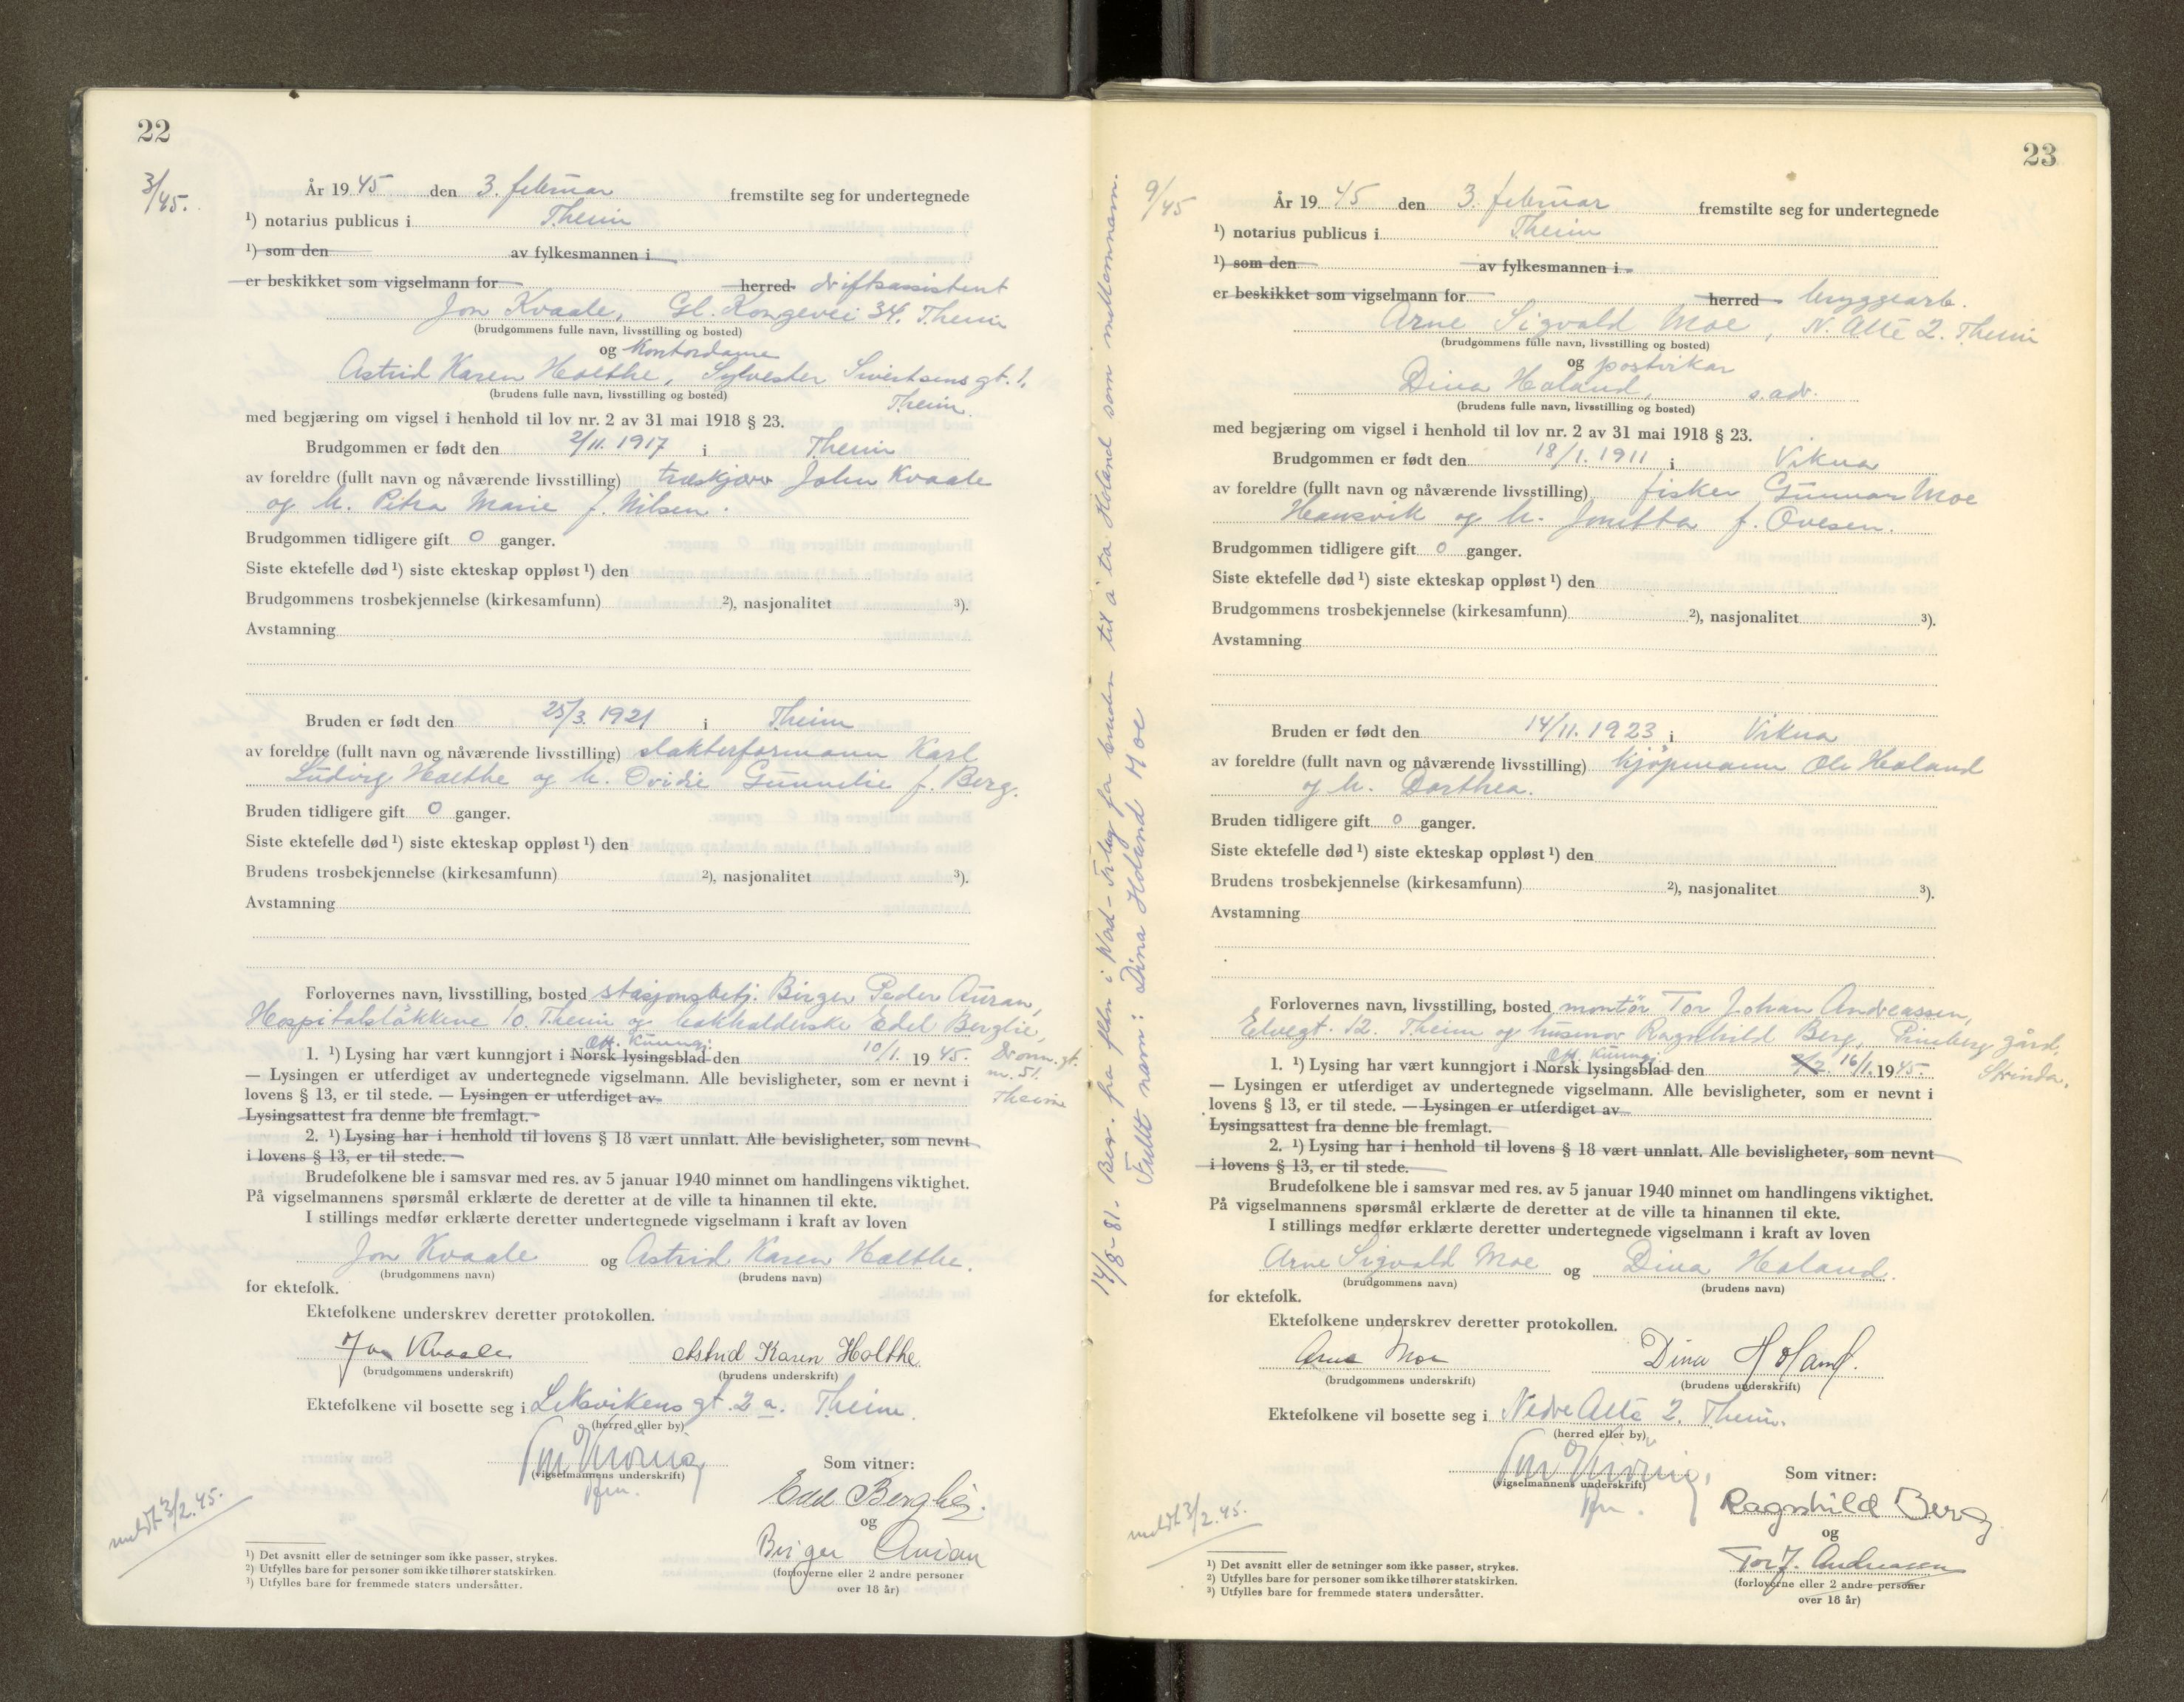 22
3/45.
År 1945 den 3. februar fremstilte seg for undertegnede
¹) notarius publicus i Theim
¹) som den av fylkesmannen i
er beskikket som vigselmann for herred driftsassistent
Jon Kvaale, Gl. Kongevei 34. Theim
(brudgommens fulle navn, livsstilling og bosted)
og Kontordame
Astrid Karen Holthe, Sylvester Sivertsens gt. 1.
(brudens fulle navn, livsstilling og bosted)
Theim.
med begjæring om vigsel i henhold til lov nr. 2 av 31 mai 1918 § 23.
Brudgommen er født den 2/11. 1917 i Theim
av foreldre (fullt navn og nåværende livsstilling) træskjærer John Kvaale
og h. Petra Marie f. Nilsen.
Brudgommen tidligere gift 0 ganger.
Siste ektefelle død ¹) siste ekteskap oppløst ¹) den
Brudgommens trosbekjennelse (kirkesamfunn) ²), nasjonalitet ³).
Avstamning
Bruden er født den 25/3. 1921 i Theim
av foreldre (fullt navn og nåværende livsstilling) slakterformann Karl
Ludvig Holthe og h. Ovidie Gunnelie f. Berg.
Bruden tidligere gift 0 ganger.
Siste ektefelle død ¹) siste ekteskap oppløst ¹) den
Brudens trosbekjennelse (kirkesamfunn) ²), nasjonalitet ³).
Avstamning
Forlovernes navn, livsstilling, bosted stasjonsbetj. Birger Peder Auran,
Hospitalsløkkene 10. Theim og bokholderske Edel Berglie,
Off. Kunngj.
1. ¹) Lysing har vært kunngjort i Norsk lysingsblad den 10/1. 1945. Dronn. gt.
nr. 51.
Theim
— Lysingen er utferdiget av undertegnede vigselmann. Alle bevisligheter, som er nevnt i
lovens § 13, er til stede. — Lysingen er utferdiget av
Lysingsattest fra denne ble fremlagt.
2. ¹) Lysing har i henhold til lovens § 18 vært unnlatt. Alle bevisligheter, som nevnt
i lovens § 13, er til stede.
Brudefolkene ble i samsvar med res. av 5 januar 1940 minnet om handlingens viktighet.
På vigselmannens spørsmål erklærte de deretter at de ville ta hinannen til ekte.
I stillings medfør erklærte deretter undertegnede vigselmann i kraft av loven
Jon Kvaale og Astrid Karen Holthe.
(brudgommens navn) (brudens navn)
for ektefolk.
Ektefolkene underskrev deretter protokollen.
Jon Kvaale Astrid Karen Holthe.
(brudgommens underskrift) (brudens underskrift)
Ektefolkene vil bosette seg i Leksvikens gt. 2 a. Theim.
(herred eller by)
(vigselmannens underskrift)
Som vitner:
Edel Berglie.
og
Birger Auran
(forloverne eller 2 andre personer
over 18 år)
meldt 3/2.45.
¹) Det avsnitt eller de setninger som ikke passer, strykes.
²) Utfylles bare for personer som ikke tilhører statskirken.
³) Utfylles bare for fremmede staters undersåtter.
14/8-81. Bev. fra fylkn i Nord-Trlag for bruden til å ta Holand som mellomnavn.
Fullt navn: Dina Holand Moe
23
9/45
År 1945 den 3. februar fremstilte seg for undertegnede
¹) notarius publicus i Theim
¹) som den av fylkesmannen i
er beskikket som vigselmann for herred bryggearb.
Arne Sigvald Moe, N. Alle 2. Theim
(brudgommens fulle navn, livsstilling og bosted)
og postvikar
Dina Holand, s. adr.
(brudens fulle navn, livsstilling og bosted)
med begjæring om vigsel i henhold til lov nr. 2 av 31 mai 1918 § 23.
Brudgommen er født den 18/1. 1911 i Vikna
av foreldre (fullt navn og nåværende livsstilling) fisker Gunnar Moe
Hansvik og h. Jonetta f. Ovesen.
Brudgommen tidligere gift 0 ganger.
Siste ektefelle død ¹) siste ekteskap oppløst ¹) den
Brudgommens trosbekjennelse (kirkesamfunn) ²), nasjonalitet ³).
Avstamning
Bruden er født den 14/11. 1923 i Vikna
av foreldre (fullt navn og nåværende livsstilling) kjøpmann Ole Holand
og h. Dorthea.
Bruden tidligere gift 0 ganger.
Siste ektefelle død ¹) siste ekteskap oppløst ¹) den
Brudens trosbekjennelse (kirkesamfunn) ²), nasjonalitet ³).
Avstamning
Forlovernes navn, livsstilling, bosted montør Tor Johan Andreassen,
Elvegt. 12. Theim og husmor Ragnhild Berg, gård,
Off. Kunngj.
1. ¹) Lysing har vært kunngjort i Norsk lysingsblad den 16/1. 1945. Strinda.
— Lysingen er utferdiget av undertegnede vigselmann. Alle bevisligheter, som er nevnt i
lovens § 13, er til stede. — Lysingen er utferdiget av
Lysingsattest fra denne ble fremlagt.
2. ¹) Lysing har i henhold til lovens § 18 vært unnlatt. Alle bevisligheter, som nevnt
i lovens § 13, er til stede.
Brudefolkene ble i samsvar med res. av 5 januar 1940 minnet om handlingens viktighet.
På vigselmannens spørsmål erklærte de deretter at de ville ta hinannen til ekte.
I stillings medfør erklærte deretter undertegnede vigselmann i kraft av loven
Arne Sigvald Moe og Dina Holand.
(brudgommens navn) (brudens navn)
for ektefolk.
Ektefolkene underskrev deretter protokollen.
Arne Moe Dina Holand.
(brudgommens underskrift) (brudens underskrift)
Ektefolkene vil bosette seg i Nedre Alle 2. Theim.
(herred eller by)
(vigselmannens underskrift)
Som vitner:
Ragnhild Berg
og
Tor J. Andreassen
(forloverne eller 2 andre personer
over 18 år)
meldt 3/2.45.
¹) Det avsnitt eller de setninger som ikke passer, strykes.
²) Utfylles bare for personer som ikke tilhører statskirken.
³) Utfylles bare for fremmede staters undersåtter.